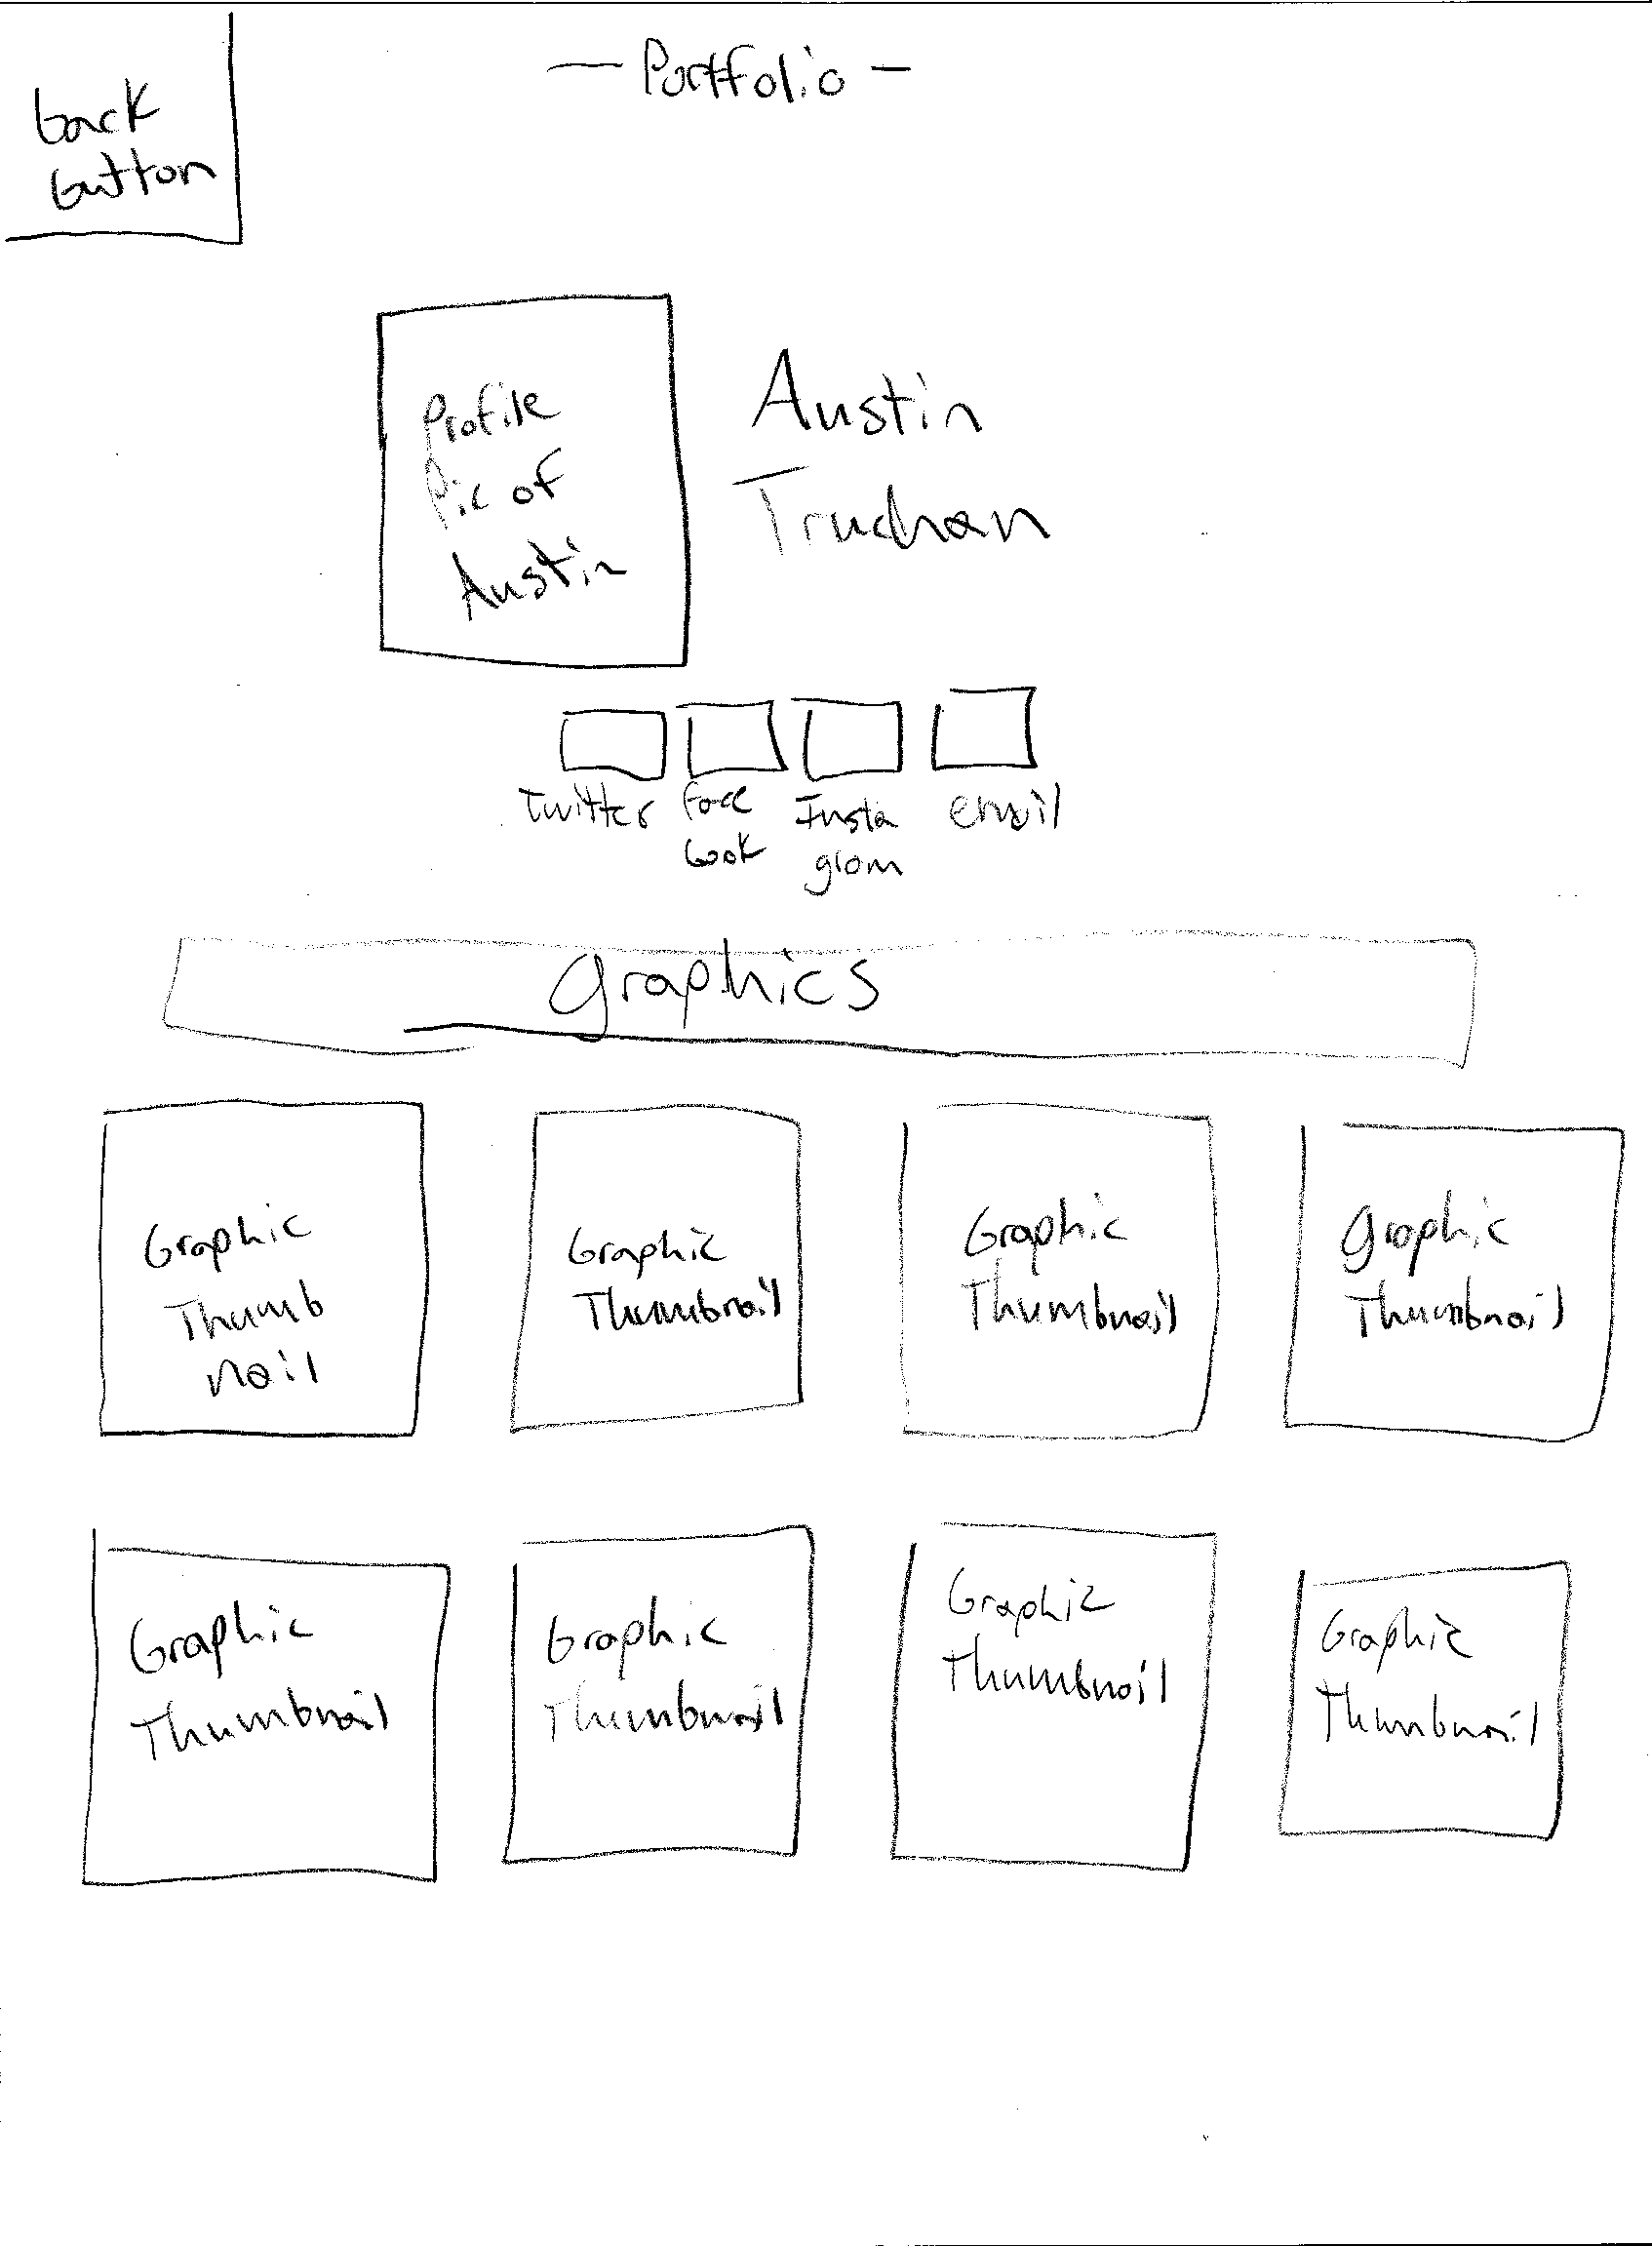 — Portfolio —
back
button
Profile
Pic of
Austin
Austin
Truchan
Twitter
Face
book
Insta
gram
email
Graphics
Graphic
Thumb
nail
Graphic
Thumbnail
Graphic
Thumbnail
Graphic
Thumbnail
Graphic
Thumbnail
Graphic
Thumbnail
Graphic
Thumbnail
Graphic
Thumbnail